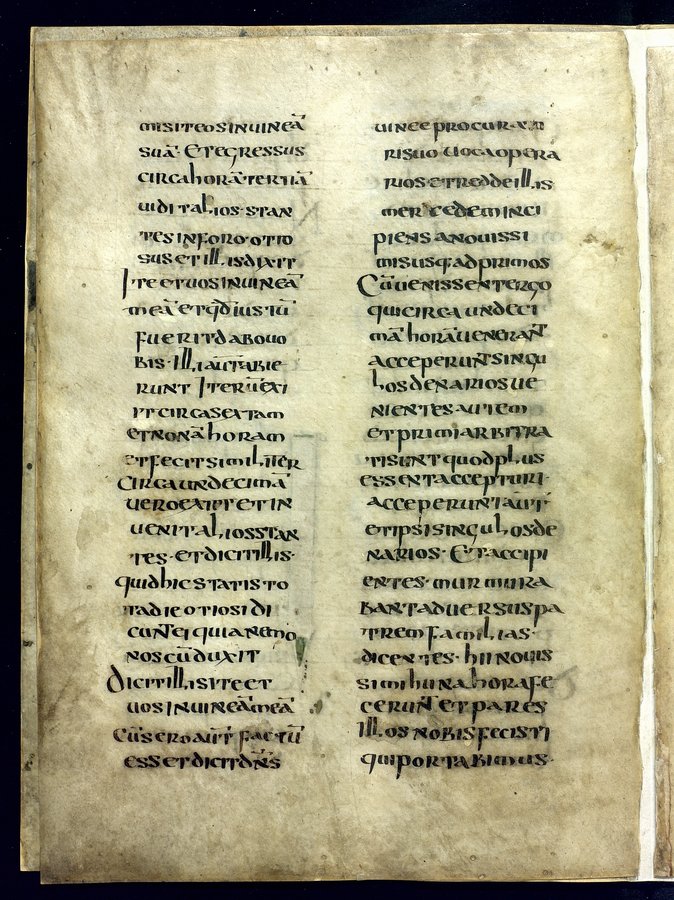 misit eos in uineā
suā· Et egressus
circa horā tertiā
uidit alios stan
tes in foro otio
sus et illis dixit
Ite et uos in uineā
meā et qđ iustū
fuerit dabo uo
bis· Illi aūt abie
runt Iterū exi
it circa sextam
et nonā horam
et fecit similiter
circa undecimā
uero exiit et in
uenit alios stan
tes· et dicit illis·
quid hic statis to
ta die otiosi di
cunt ei quia nemo
nos cūduxit
Dicit illis ite et
uos in uineā meā
Cū sero aūt factū
esset dicit dn̄s
uinee procurato
ri suo uoca opera
rios et redde illis
mercedem inci
piens a nouissi
mis usq· ad primos
Cū uenissent ergo
qui circa undeci
mā horā uenerant
acceperunt singu
los denarios ue
nientes autem
et primi arbitra
ti sunt quod plus
essent accepturi·
acceperunt aūt
et ipsi singulos de
narios· Et accipi
entes· murmura
bant aduersus pa
trem familias·
dicentes· hii nouis
simi una hora fe
cerunt et pares
illos nobis fecisti
qui portabimus·